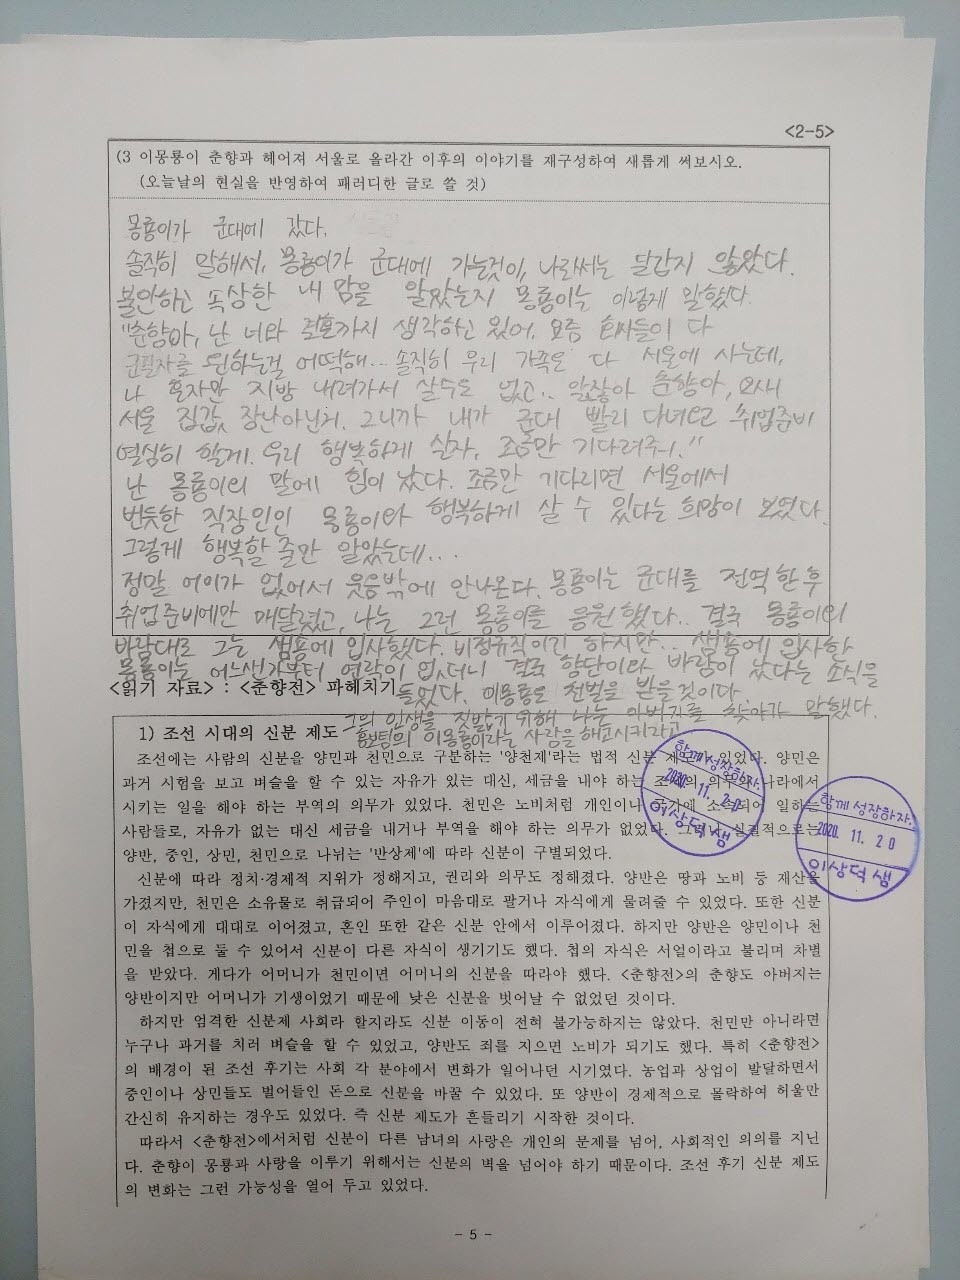 <2-5>
(3 이몽룡이 춘향과 헤어져 서울로 올라간 이후의 이야기를 재구성하여 새롭게 써보시오.
(오늘날의 현실을 반영하여 패러디한 글로 쓸 것)
몽룡이가 군대에 갔다.
솔직히 말해서, 몽룡이가 군대에 가는것이, 나로써는 달갑지 않았다.
불안하고 속상한 내 맘을 알았는지 몽룡이는 이렇게 말했다.
"춘향아, 난 너와 결혼까지 생각하고 있어. 요즘 회사들이 다
군필자를 원하는걸 어떡해... 솔직히 우리 가족은 다 서울에 사는데,
나 혼자만 지방 내려가서 살수는 없고.. 알잖아 춘향아, 요새
서울 집값 장난아닌거. 그니까 내가 군대 빨리 다녀오고 취업준비
열심히 할게. 우리 행복하게 살자, 조금만 기다려줘!."
난 몽룡이의 말에 힘이 났다. 조금만 기다리면 서울에서
번듯한 직장인인 몽룡이와 행복하게 살 수 있다는 희망이 보였다.
그렇게 행복할 줄만 알았는데...
정말 어이가 없어서 웃음밖에 안나온다. 몽룡이는 군대를 전역한 후
취업준비에만 매달렸고, 나는 그런 몽룡이를 응원했다.. 결국 몽룡이의
바람대로 그는 샘송에 입사했다. 비정규직이긴 하지만.. 샘송에 입사한
몽룡이는 어느샌가부터 연락이 없더니 결국 향단이와 바람이 났다는 소식을
<읽기 자료> : <춘향전> 파헤치기 들었다. 이몽룡은 천벌을 받을것이다.
그의 인생을 짓밟기 위해 나는 아버지를 찾아가 말했다.
1) 조선 시대의 신분 제도 홍보팀의 이몽룡이라는 사람을 해고시키라고
조선에는 사람의 신분을 양민과 천민으로 구분하는 '양천제'라는 법적 신분 제도가 있었다. 양민은
과거 시험을 보고 벼슬을 할 수 있는 자유가 있는 대신, 세금을 내야 하는 조세의 의무와 나라에서
시키는 일을 해야 하는 부역의 의무가 있었다. 천민은 노비처럼 개인이나 국가에 소속되어 일하는
사람들로, 자유가 없는 대신 세금을 내거나 부역을 해야 하는 의무가 없었다. 그러나 실질적으로는
양반, 중인, 상민, 천민으로 나뉘는 '반상제'에 따라 신분이 구별되었다.
신분에 따라 정치·경제적 지위가 정해지고, 권리와 의무도 정해졌다. 양반은 땅과 노비 등 재산을
가졌지만, 천민은 소유물로 취급되어 주인이 마음대로 팔거나 자식에게 물려줄 수 있었다. 또한 신분
이 자식에게 대대로 이어졌고, 혼인 또한 같은 신분 안에서 이루어졌다. 하지만 양반은 양민이나 천
민을 첩으로 둘 수 있어서 신분이 다른 자식이 생기기도 했다. 첩의 자식은 서얼이라고 불리며 차별
을 받았다. 게다가 어머니가 천민이면 어머니의 신분을 따라야 했다. <춘향전>의 춘향도 아버지는
양반이지만 어머니가 기생이었기 때문에 낮은 신분을 벗어날 수 없었던 것이다.
하지만 엄격한 신분제 사회라 할지라도 신분 이동이 전혀 불가능하지는 않았다. 천민만 아니라면
누구나 과거를 치러 벼슬을 할 수 있었고, 양반도 죄를 지으면 노비가 되기도 했다. 특히 <춘향전>
의 배경이 된 조선 후기는 사회 각 분야에서 변화가 일어나던 시기였다. 농업과 상업이 발달하면서
중인이나 상민들도 벌어들인 돈으로 신분을 바꿀 수 있었다. 또 양반이 경제적으로 몰락하여 허울만
간신히 유지하는 경우도 있었다. 즉 신분 제도가 흔들리기 시작한 것이다.
따라서 <춘향전>에서처럼 신분이 다른 남녀의 사랑은 개인의 문제를 넘어, 사회적인 의의를 지닌
다. 춘향이 몽룡과 사랑을 이루기 위해서는 신분의 벽을 넘어야 하기 때문이다. 조선 후기 신분 제도
의 변화는 그런 가능성을 열어 두고 있었다.
함께 성장하자.
2020. 11. 20
이상덕 샘
함께 성장하자.
2020. 11. 20
이상덕 샘
- 5 -